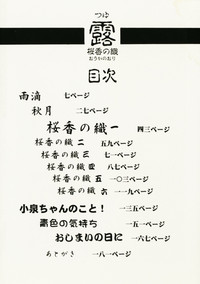 つゆ
露
桜香の織
おうかのおり
目次
雨滴 七ページ
秋月 二七ページ
桜香の織一 四三ページ
桜香の織二 五九ページ
桜香の織三 七一ページ
桜香の織四 八七ページ
桜香の織五 一〇三ページ
桜香の織六 一一九ページ
小泉ちゃんのこと! 一三五ページ
素色の気持ち 一五一ページ
おしまいの日に 一六七ページ
あとがき 一八一ページ